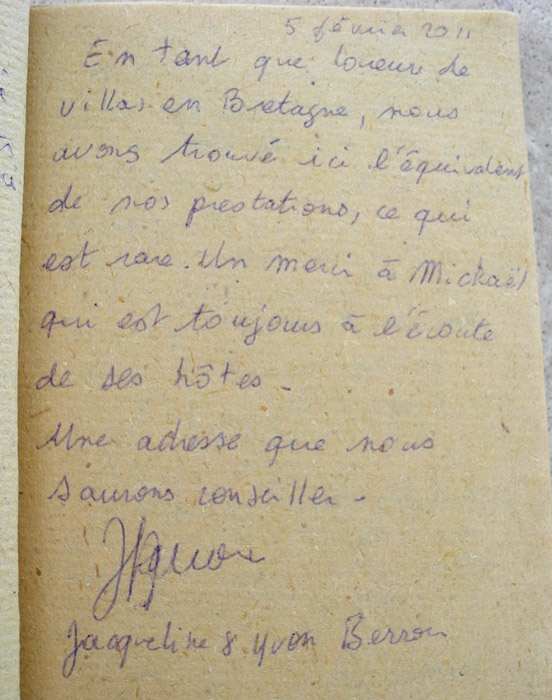 5 février 2011
En tant que loueur de
villas en Bretagne, nous
avons trouvé ici l'équivalent
de nos prestations, ce qui
est rare. Un merci à Mickaël
qui est toujours à l'écoute
de ses hôtes.
Une adresse que nous
saurons conseiller.
Jacqueline & Yvon